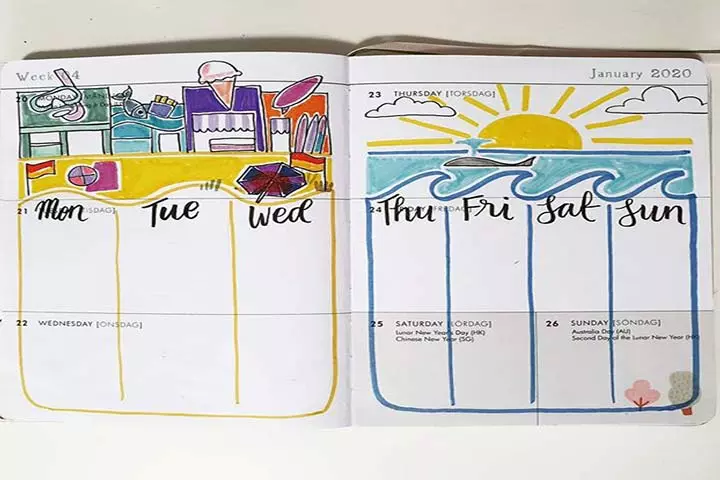 Week 04
20 MONDAY
Mon Tue Wed
21
22 WEDNESDAY [ONSDAG]
January 2020
23 THURSDAY [TORSDAG]
Thu Fri Sat Sun
24
25 SATURDAY [LÖRDAG]
Lunar New Year's Day (HK)
Chinese New Year (SG)
26 SUNDAY [SÖNDAG]
Australia Day (AU)
Second Day of the Lunar New Year (HK)